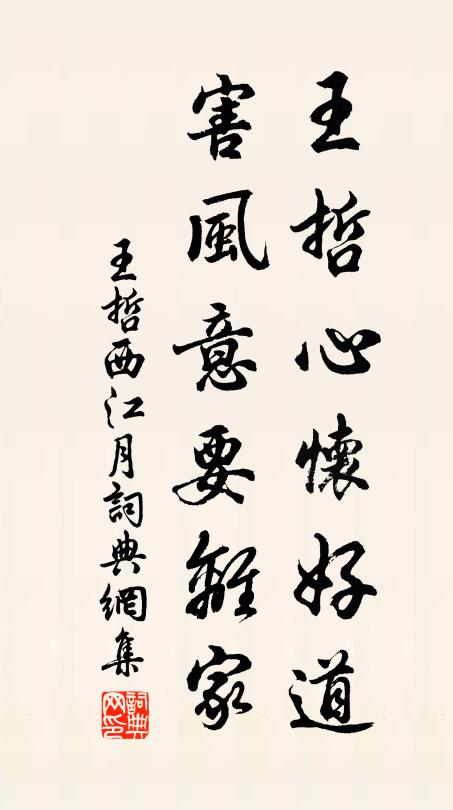 王哲心懷好道
害風意要離家
王哲西江月詞典網集
詞典网印